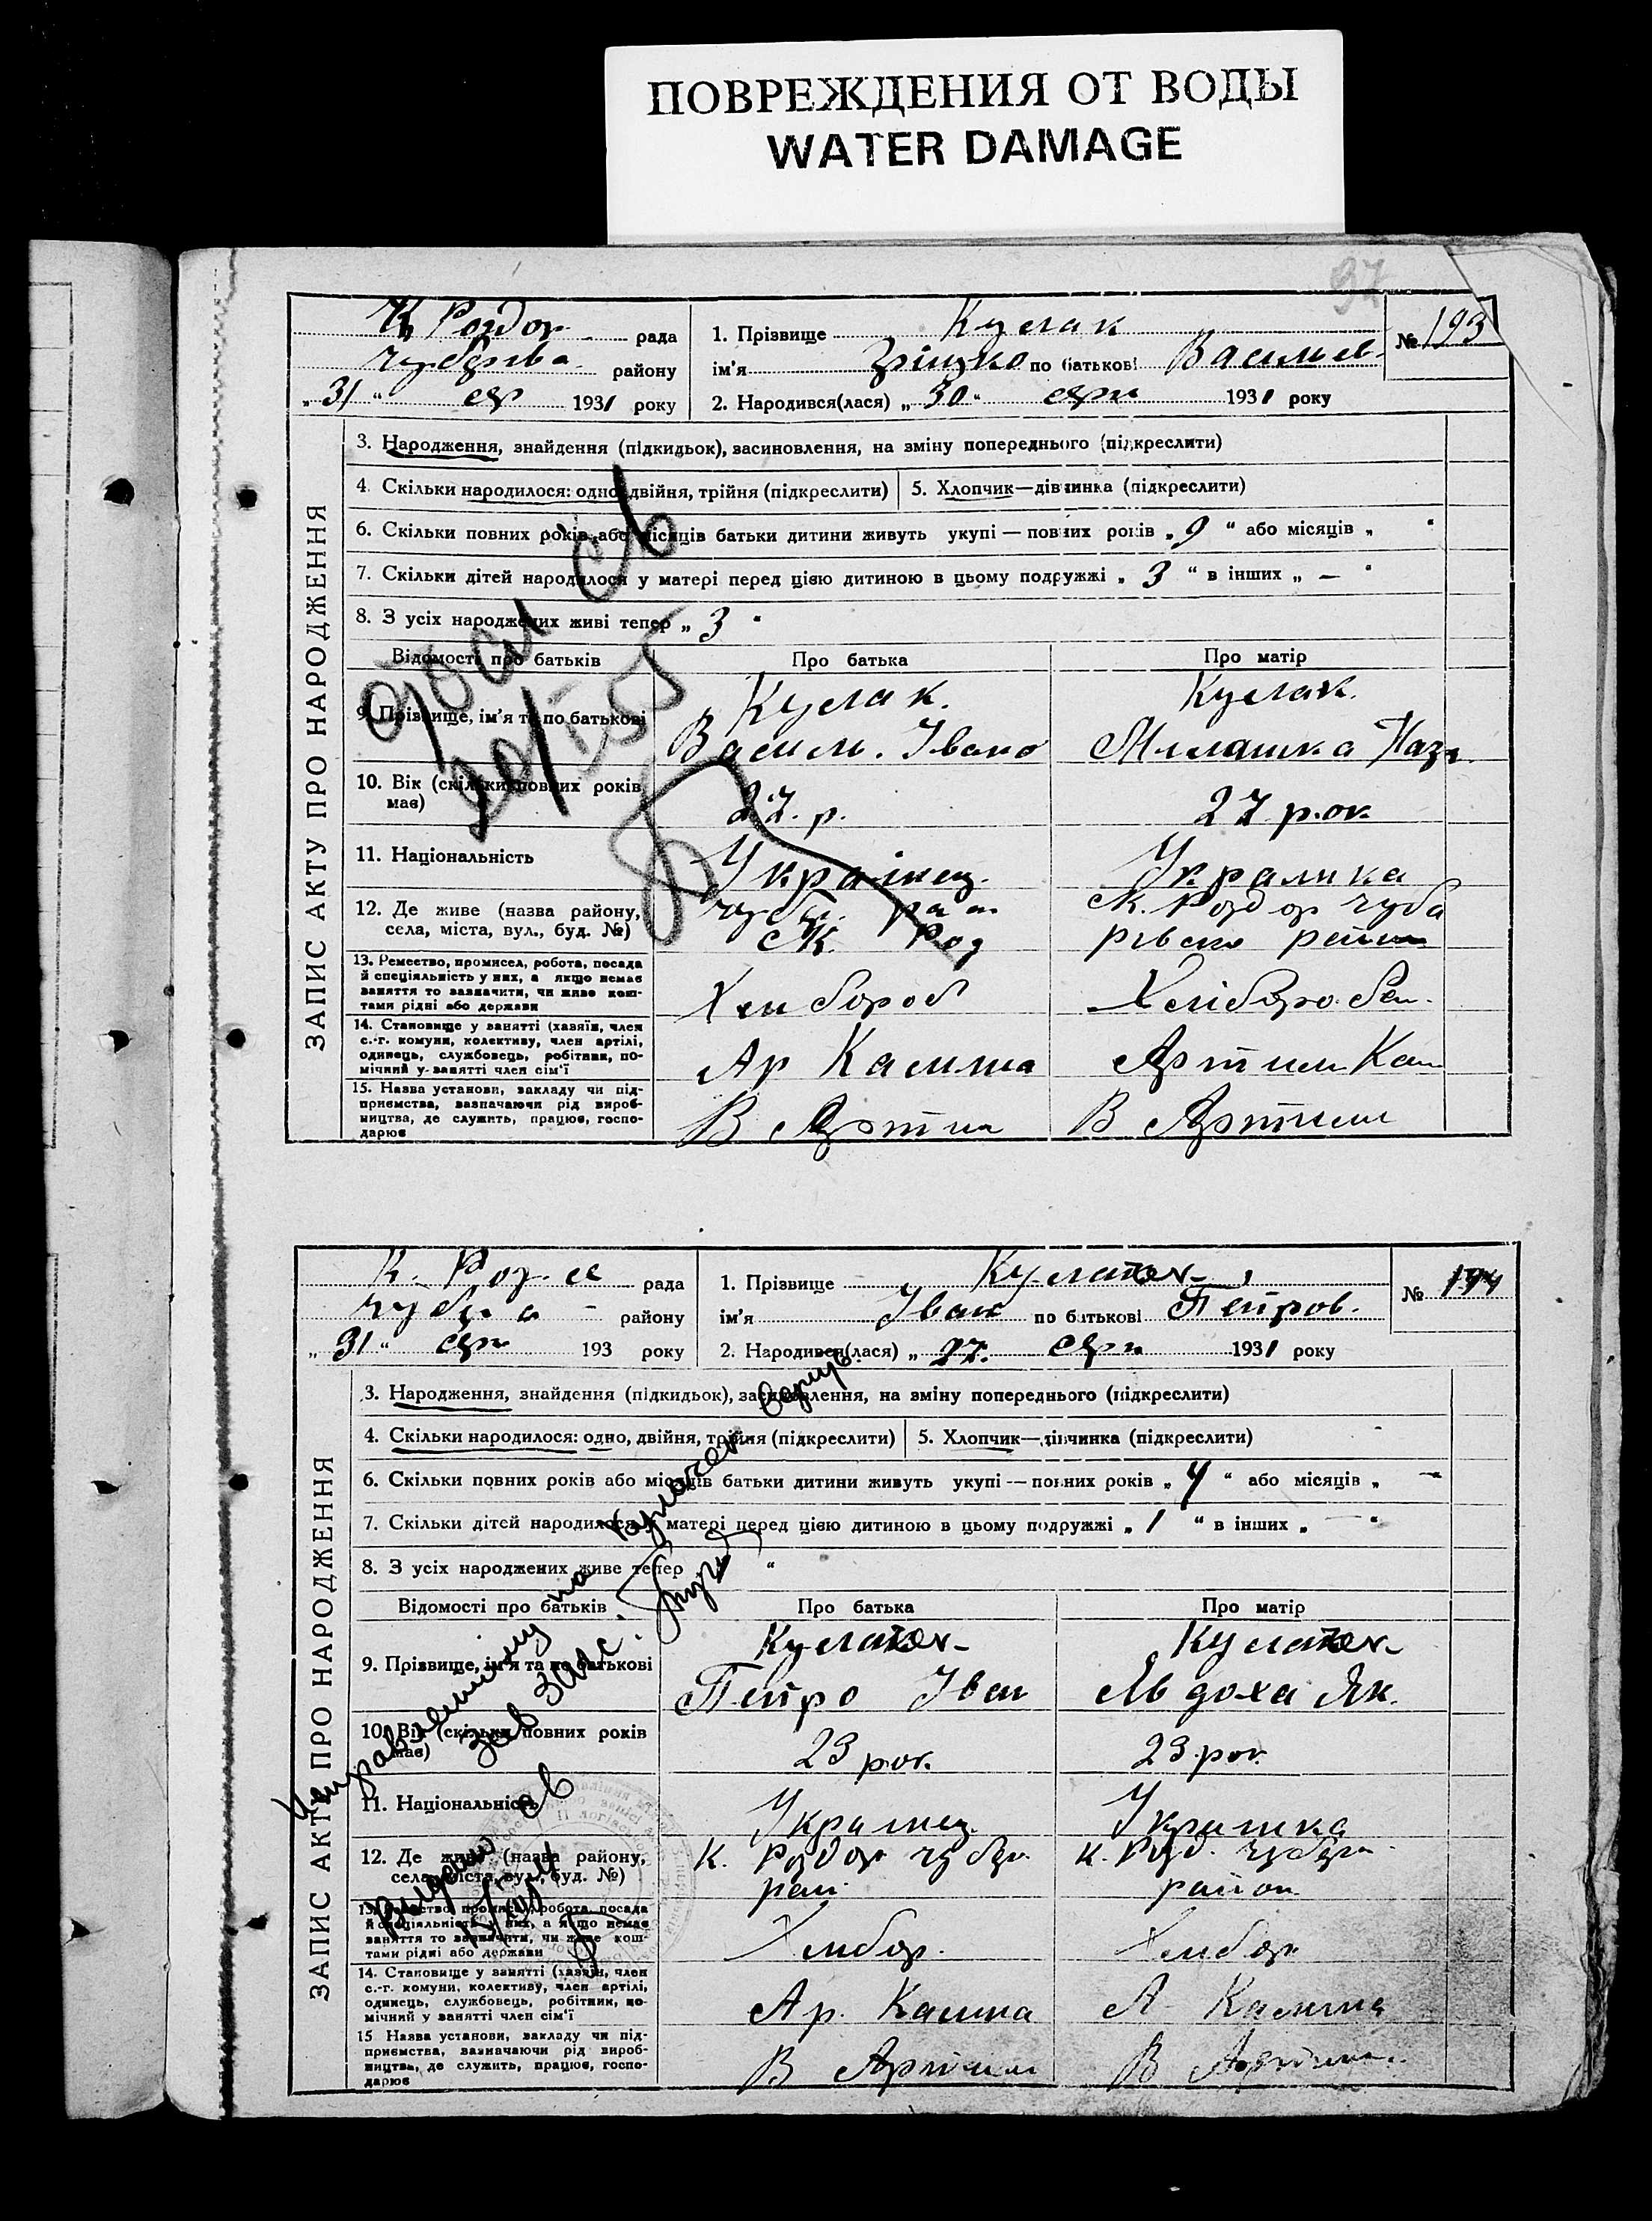 ПОВРЕЖДЕНИЯ ОТ ВОДЫ
WATER DAMAGE
97
К Роздор рада
Чубарiва району
„31“ сер 1931 року
1. Прізвище Кулак
ім'я Гріцко по батькові Васильев.
2. Народився(лася) „30“ серп 1931 року
№ 193
ЗАПИС АКТУ ПРО НАРОДЖЕННЯ
3. Народження, знайдення (підкидьок), засиновлення, на зміну попереднього (підкреслити)
4. Скільки народилося: одно, двійня, трійня (підкреслити)
5. Хлопчик—дівчинка (підкреслити)
6. Скільки повних років або місяців батьки дитини живуть укупі — повних років „9“ або місяців „ “
7. Скільки дітей народилося у матері перед цією дитиною в цьому подружжі „3“ в інших „—“
8. З усіх народжених живі тепер „3“
Відомості про батьків
Про батька
Про матір
9. Прізвище, ім'я та по батькові
Кулак.
Василь. Івано
Кулак.
Милашка Наз
10. Вік (скільки повних років має)
27. р.
27 р.ок.
11. Національність
Українец.
Украинка
12. Де живе (назва району,
села, міста, вул., буд. №)
К. Роздор Чуба
рівско район
13. Ремество, промисел, робота, посада
й спеціяльність у них, а якщо немає
заняття то зазначити, чи живе кош-
тами рідні або держави
Хлибороб
Хлібороб
14. Становище у занятті (хазяїн, член
с.-г. комуни, колективу, член артілі,
одинець, службовець, робітник, по-
мічний у занятті член сім'ї
Ар Калина
Артил Кал
15. Назва установи, закладу чи під-
приємства, зазначаючи рід вироб-
ництва, де служить, працює, госпо-
дарює
В Артил
В Артили
К. Розд рада
району
„31“ серп 193 року
1. Прізвище
ім'я Іван по батькові Петров.
2. Народився(лася) „27. серп 1931 року
№ 194
ЗАПИС АКТУ ПРО НАРОДЖЕННЯ
3. Народження, знайдення (підкидьок), засиновлення, на зміну попереднього (підкреслити)
4. Скільки народилося: одно, двійня, трійня (підкреслити)
5. Хлопчик—дівчинка (підкреслити)
6. Скільки повних років або місяців батьки дитини живуть укупі — повних років „4“ або місяців „—
7. Скільки дітей народилося у матері перед цією дитиною в цьому подружжі „1“ в інших „—“
8. З усіх народжених живе тепер „ “
Відомості про батьків
Про батька
Про матір
9. Прізвище, ім'я та по батькові
Петро Іван
Явдоха Як.
10. Вік (скільки повних років має)
23 рок.
23 рок.
11. Національність
Украинец
Украинка
12. Де живе (назва району,
села, міста, вул., буд. №)
К. Роздор Чубар
рай
К. Розд. Чубар
район
13. Ремество, промисел, робота, посада
й спеціяльність у них, а якщо немає
заняття то зазначити, чи живе кош-
тами рідні або держави
Хлибор.
Хлибор
14. Становище у занятті (хазяїн, член
с.-г. комуни, колективу, член артілі,
одинець, службовець, робітник, по-
мічний у занятті член сім'ї
Ар. Калина
А Калина
15. Назва установи, закладу чи під-
приємства, зазначаючи рід вироб-
ництва, де служить, працює, госпо-
дарює
В Артили
В Артили